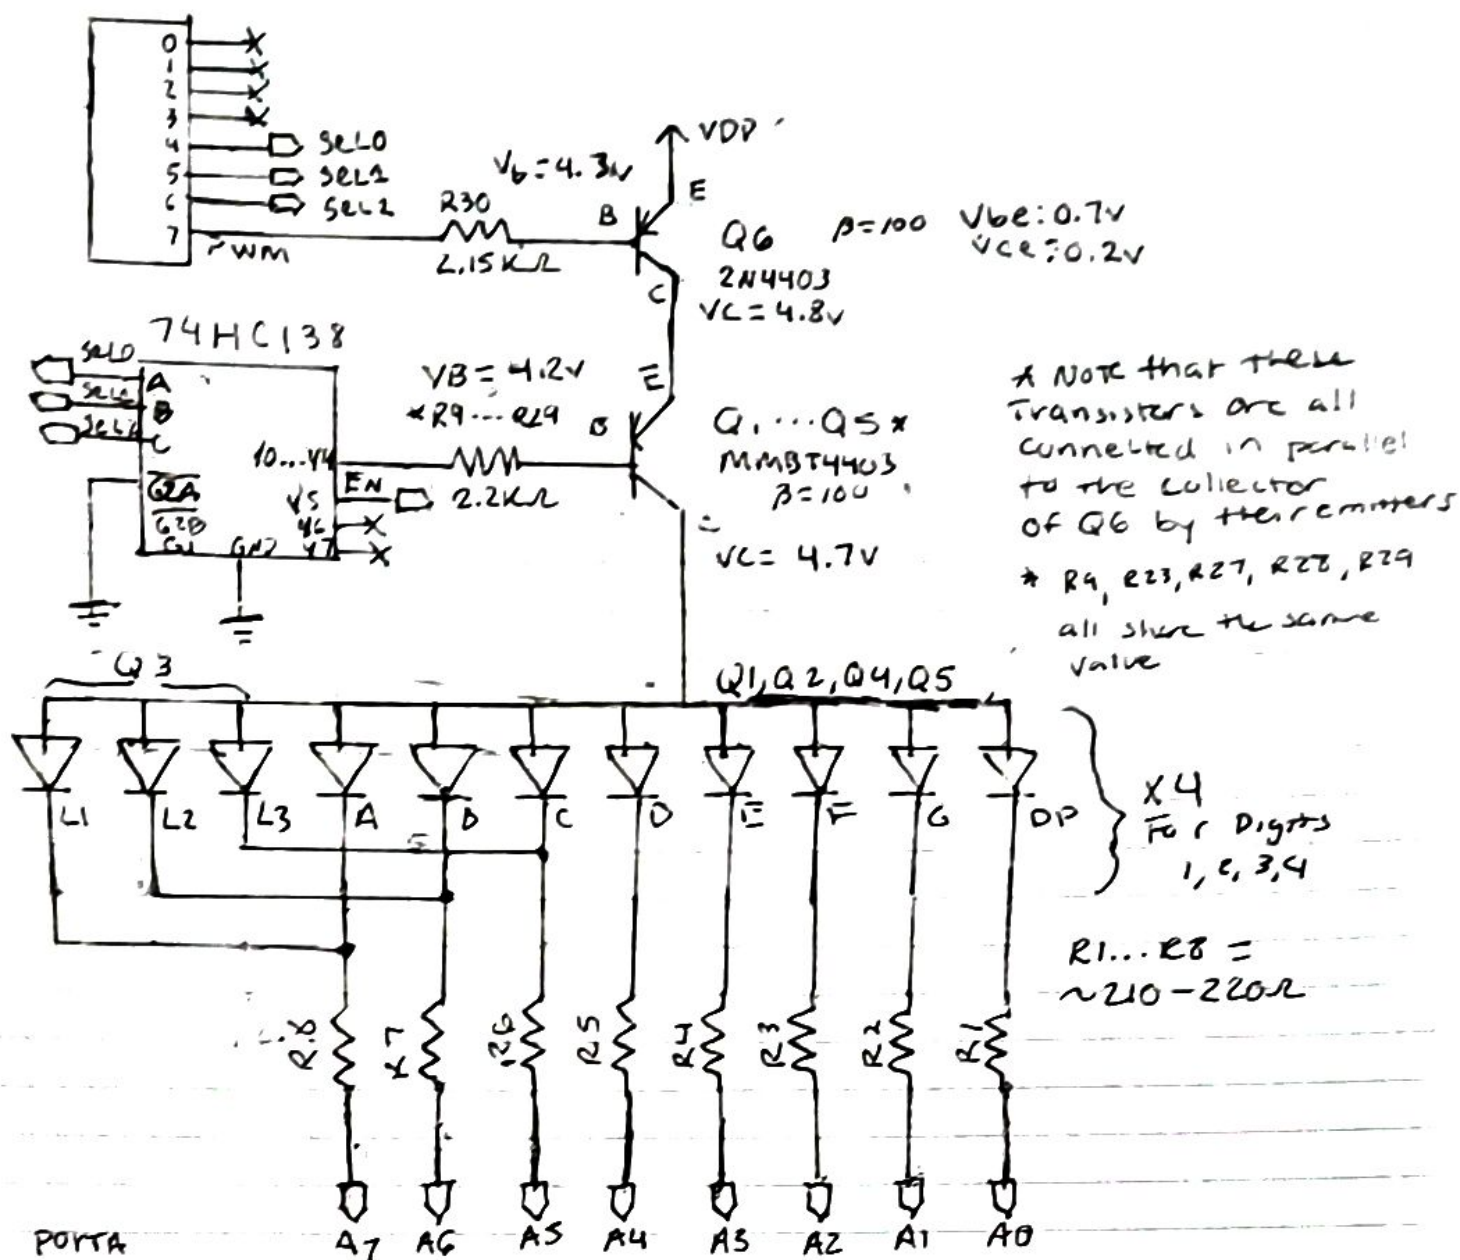 0
1
2
3
4 SEL0
5 SEL1
6 SEL2
7 ~WM
R30
2.15KΩ
Vb=4.3v
VDD
B
E
C
Q6
2N4403
VC=4.8v
β=100
Vbe:0.7v
Vce:0.2v
74HC138
SEL0
A
B
C
G2A
G2B
G1
GND
Y5
EN
Y6
Y7
VB=4.2v
*R9...R29
2.2KΩ
B
E
Q1...Q5*
MMBT4403
β=100
VC=4.7V
* Note that these
Transistors are all
connected in parallel
to the collector
of Q6 by their emitters
* R9, R23, R27, R28, R29
all share the same
value
Q3
Q1, Q2, Q4, Q5
L1 L2 L3 A B C D E F G DP
X4
For Digits
1, 2, 3, 4
R1...R8 =
~210-220Ω
R8 R7 R6 R5 R4 R3 R2 R1
PORTA
A7 A6 A5 A4 A3 A2 A1 A0